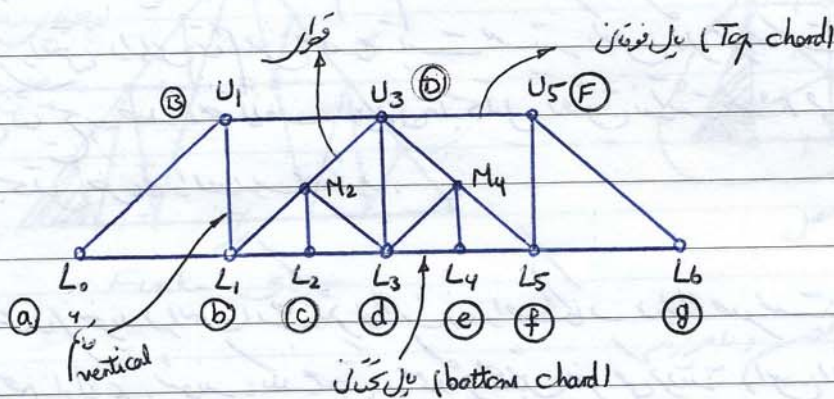 قطری
یال فوقانی (Top chord)
B U₁ U₃ D U₅ F
M₂ M₄
L₀ L₁ L₂ L₃ L₄ L₅ L₆
a b c d e f g
قائم
vertical
یال تحتانی (bottom chord)